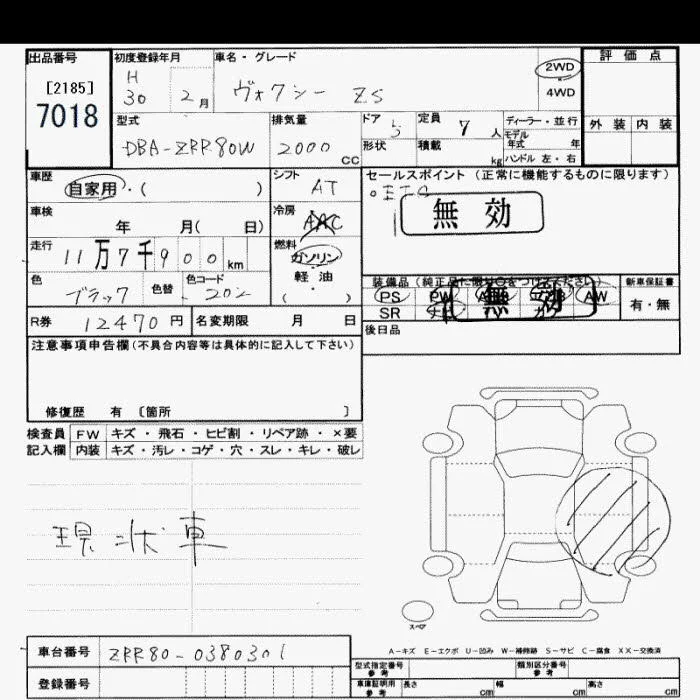 出品番号
[2185]
7018
初度登録年月
H
30 2月
車名・グレード
ヴォクシー ZS
2WD
4WD
評価点
外装 内装
型式
DBA-ZRR80W
排気量
2000 CC
ドア 5
形状
定員 7 人
積載 kg
ディーラー・並行
モデル年式 年
ハンドル 左・右
車歴
自家用・( )
シフト
AT
セールスポイント (正常に機能するものに限ります)
無効
車検
年 月( 日)
冷房
AAC
走行
11万7千900km
燃料
ガソリン
軽油
( )
色
ブラック
色替
色コード
202
装備品 (純正品に限り○をつけてください)
PS PW AW
SR
無効
新車保証書
有・無
R券 12470円
名変期限 月 日
後日品
注意事項申告欄 (不具合内容等は具体的に記入して下さい)
修復歴 有 〔箇所 〕
検査員記入欄
FW キズ・飛石・ヒビ割・リペア跡・×要
内装 キズ・汚レ・コゲ・穴・スレ・キレ・破レ
現状車
スペア
A-キズ E-エクボ U-凹み W-補修跡 S-サビ C-腐食 XX-交換済
車台番号 ZRR80-0380301
登録番号
型式指定番号 参考
類別区分番号 参考
車庫証明用 参考
長さ cm
幅 cm
高さ cm